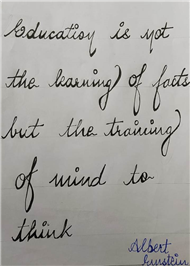 Education is not
the learning of facts
but the training
of mind to
think
Albert
Einstein